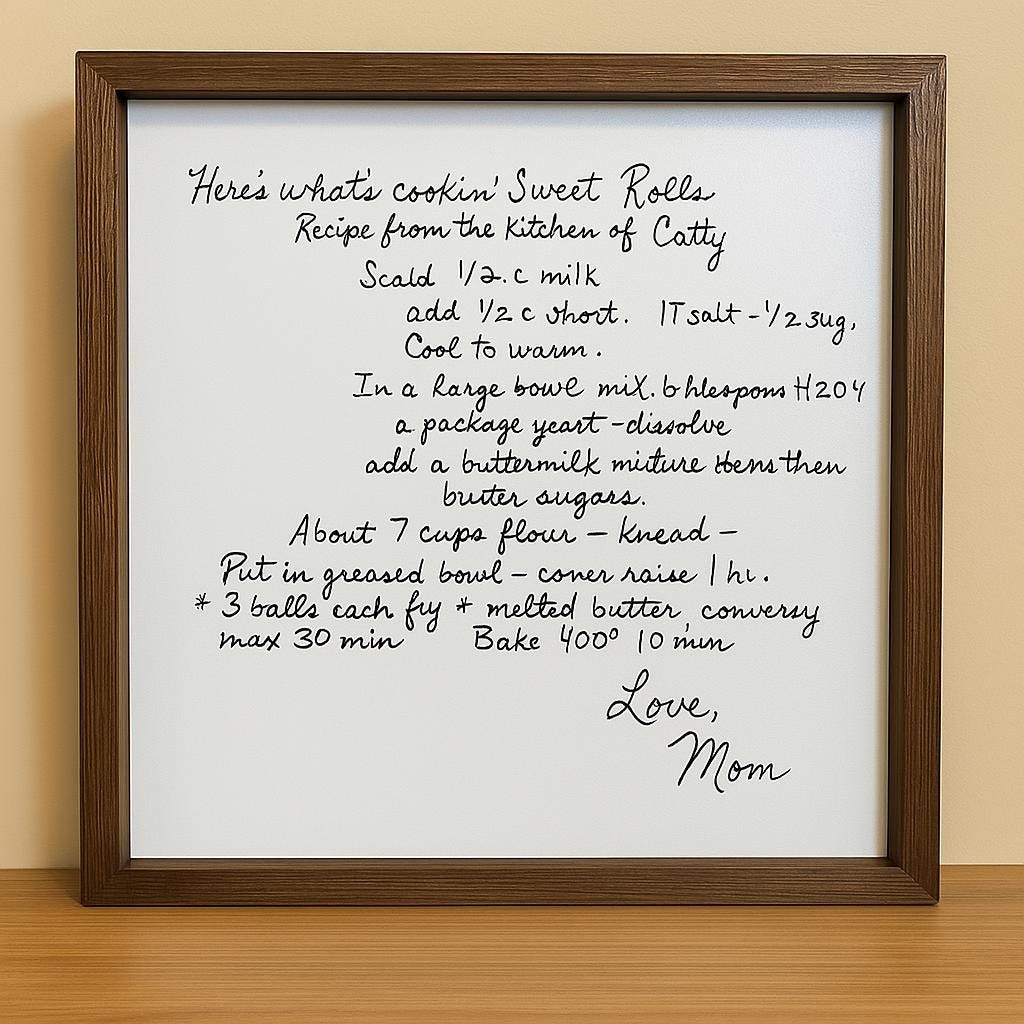 Here's what's cookin' Sweet Rolls
Recipe from the Kitchen of Catty
Scald 1/2. c milk
add 1/2 c short. 1T salt - 1/2 sug,
Cool to warm.
In a large bowl mix. 6 H2O
a package yeart - dissolve
add a buttermilk mixture then
butter sugars.
About 7 cups flour – knead –
Put in greased bowl – cover raise 1 hr.
* 3 balls each fry * melted butter,
max 30 min Bake 400° 10 min
Love,
Mom